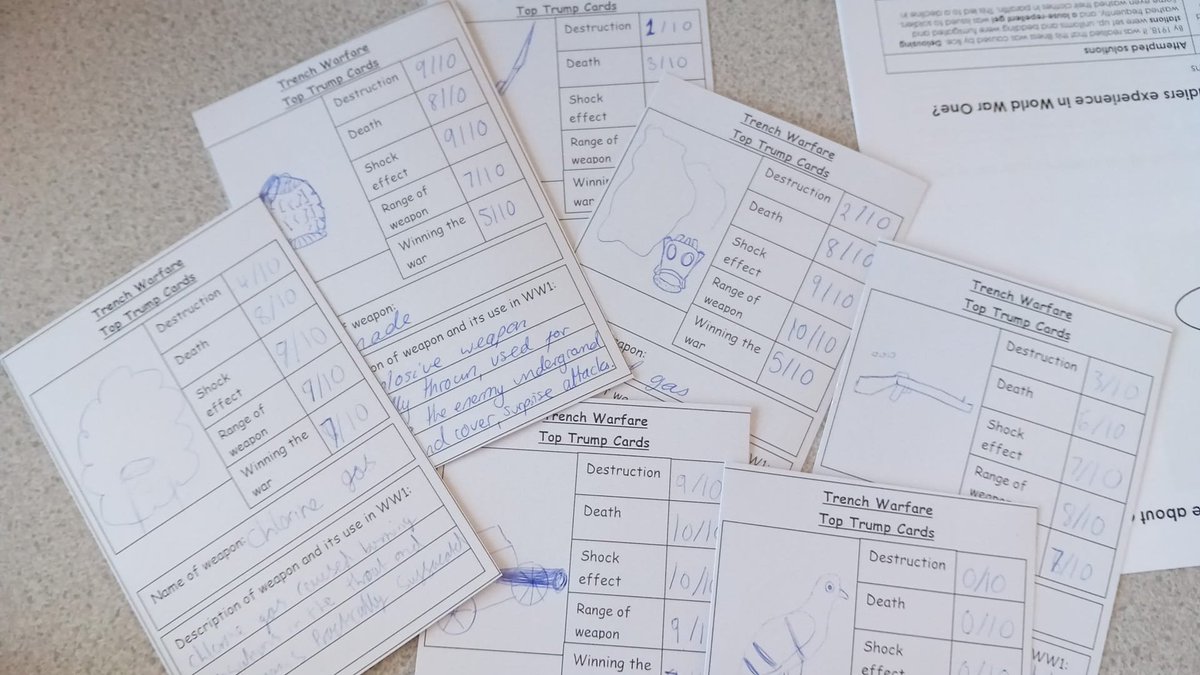 Top Trump Cards
Destruction 1/10
Death 3/10
Shock
effect
Range of
weapon
war
Trench Warfare
Top Trump Cards
Destruction 9/10
Death 8/10
Shock
effect 9/10
Range of
weapon 7/10
Winning the
war 5/10
weapon:
of weapon and its use in WW1:
weapon
thrown, used for
the enemy underground
cover, surprise attacks
Trench Warfare
Top Trump Cards
Destruction 4/10
Death 8/10
Shock
effect 9/10
Range of
weapon 9/10
Winning the
war 7/10
Name of weapon: Chlorine gas
Description of weapon and its use in WW1:
chlorine gas caused burning
in the throat and
Trench Warfare
Top Trump Cards
Destruction 2/10
Death 8/10
Shock
effect 9/10
Range of
weapon 10/10
Winning the
war 5/10
gas
WW1:
Trench Warfare
Top Trump Cards
Destruction 3/10
Death 6/10
Shock
effect 7/10
Range of
8/10
7/10
WW1:
Trench Warfare
Top Trump Cards
Destruction 9/10
Death 10/10
Shock
effect
Range of
weapon
Winning the
Trench Warfare
Top Trump Cards
Destruction 0/10
Death 0/10
Shock
effect
World War One?
Attempted solutions
Delousing
By 1918, it was realised that this illness was caused by lice.
stations were set up, uniforms and bedding were fumigated and
washed frequently, and a louse-repellent gel was issued to soldiers
about